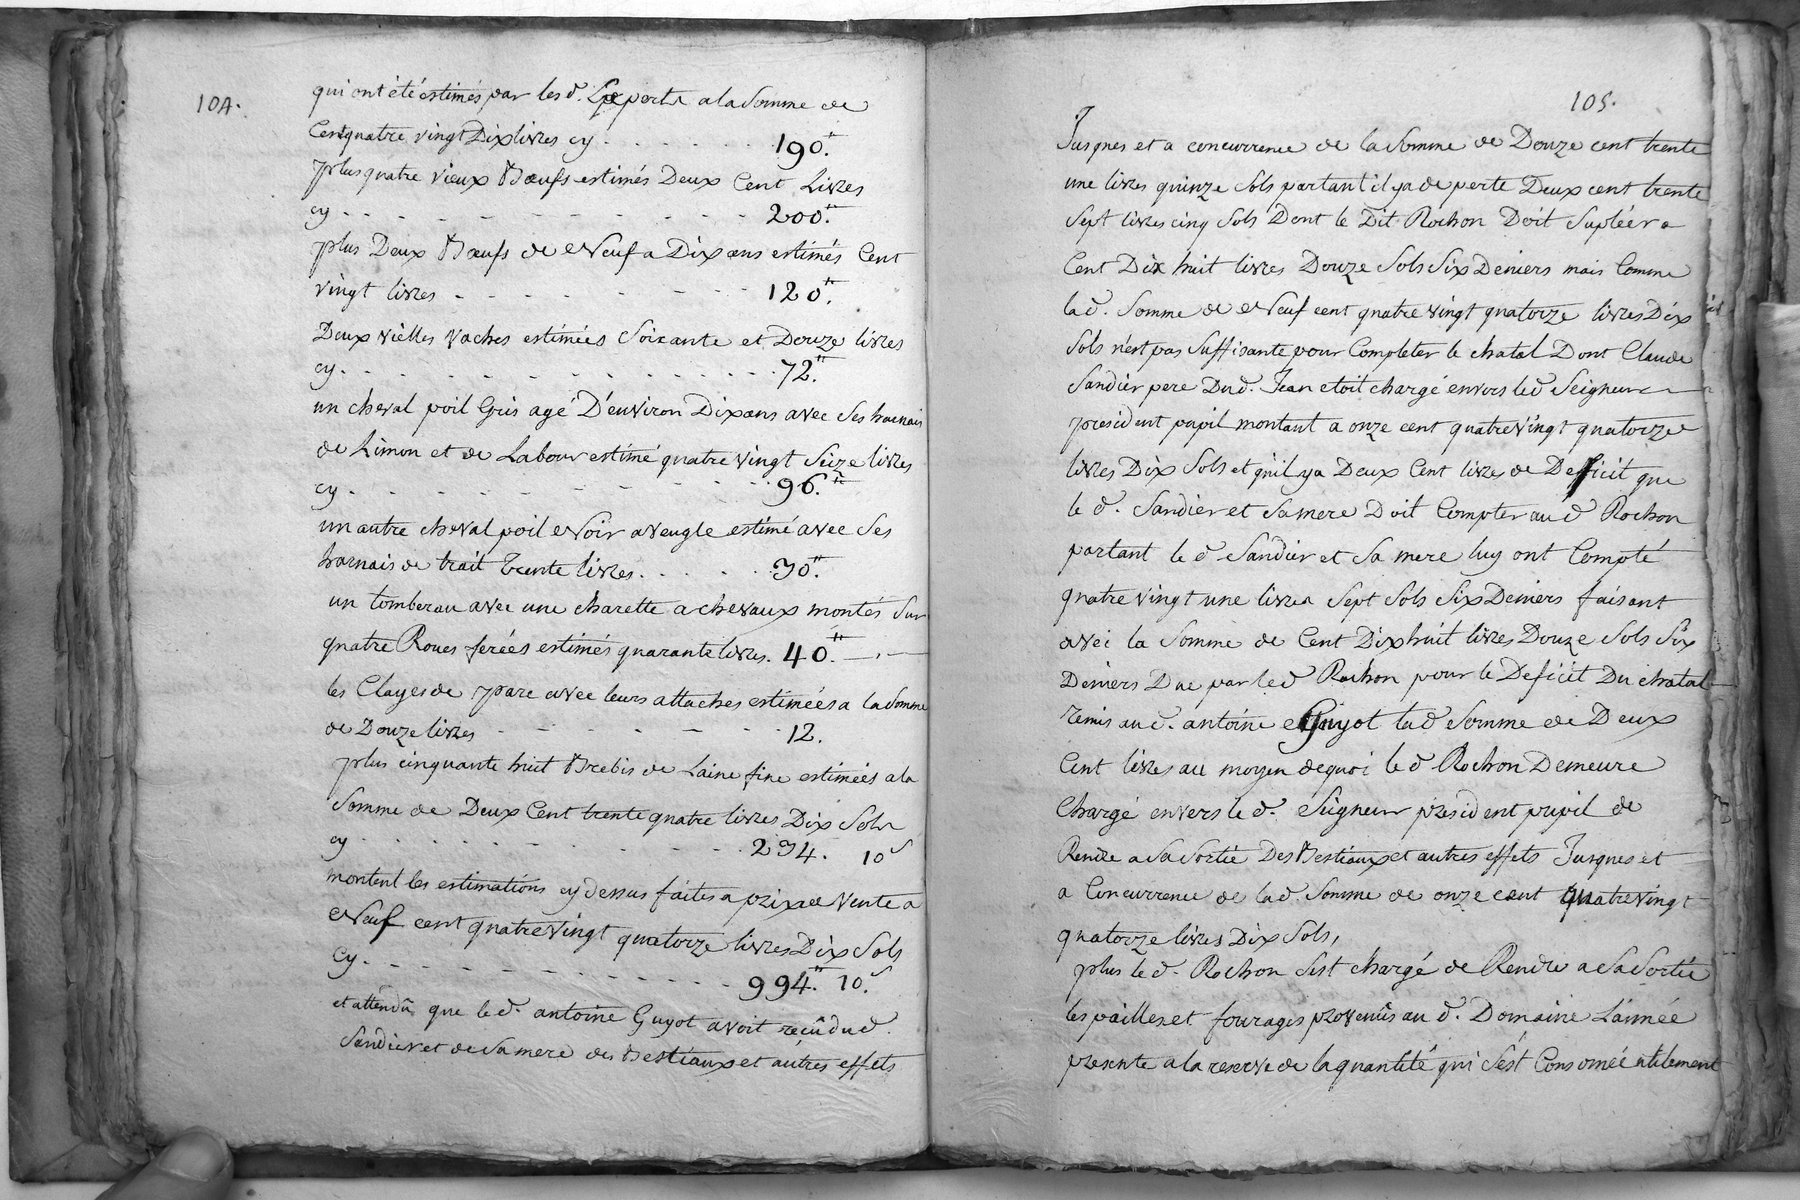 104.
qui ont été estimés par les d. Experts a la Somme de
Cent quatre vingt Dix livres cy . . . . . . 190.ᵗᵗ
plus quatre vieux Bœufs estimés Deux Cent Livres
cy . . . . . . . . . . . . 200.ᵗᵗ
plus Deux Bœufs de Neuf a Dix ans estimés Cent
vingt livres - - - - - - - - 120.ᵗᵗ
Deux viélles Vaches estimées Soixante et Douze livres
cy. . . . . . . . . . . . . 72.ᵗᵗ
un cheval poil Gris agé D'environ Dix ans avec Ses harnais
de Limon et de Labour estimé quatre vingt Seize livres
cy . . . . . . . . . . . . 96.ᵗᵗ
un autre cheval poil Noir aveugle estimé avec Ses
harnais de trait Trente livres. . . . . . 30.ᵗᵗ
un tomberau avec une charette a chevaux montés Sur
quatre Roues ferées estimés quarante livres. 40.ᵗᵗ
les Clayes de parc avec leurs attaches estimées a la Somme
de Douze livres - - - - - - - 12.
plus cinquante huit Brebis de Laine fine estimées a la
Somme de Deux Cent trente quatre livres Dix Sols
cy . . . . . . . . . . . 234. 10ˢ
montent les estimations cy dessus faites a prix de Vente a
Neuf cent quatre Vingt quatorze livres Dix Sols
Cy. - - - - - - - - - - - 994.ᵗᵗ 10.ˢ
et attendû que le d. antoine Guyot avoit reçû du d.
Sandier et de Sa mere des Bestiaux et autres effets
105.
Jusques et a concurrence de la Somme de Douze cent trente
une livres quinze Sols partant il y a de perte Deux cent trente
Sept livres cinq Sols Dont le Dit Rochon Doit Supléér a
Cent Dix huit livres Douze Sols Six Deniers mais Comme
la d. Somme de Neuf cent quatre vingt quatorze livres Dix
Sols n'est pas Suffisante pour Completer le chatal Dont Claude
Sandier pere Du d. Jean etoit chargé envers le d Seigneur
president pupil montant a onze cent quatre Vingt quatorze
livres Dix Sols et qu'il y a Deux Cent livres de Deficit que
le d. Sandier et Sa mere Doit Compter au d Rochon
partant le d Sandier et Sa mere luy ont Compté
quatre Vingt une livres Sept Sols Six Deniers faisant
avec la Somme de Cent Dix huit livres Douze Sols Six
Deniers Due par le d Rochon pour le Deficit Du chatal
remis au d. antoine Guyot la d Somme de Deux
Cent livres au moyen de quoi le d Rochon Demeure
Chargé envers le d. Seigneur president pupil de
Rendre a Sa Sortie Des Bestiaux et autres effets Jusques et
a Concurrence de la d. Somme de onze cent quatre vingt
quatorze livres Dix Sols,
plus le d. Rochon S'est chargé de Rendre a Sa Sortie
les pailles et fourages provenûs au d. Domaine L'année
presente a la reserve de la quantité qui S'est Consomée utilement